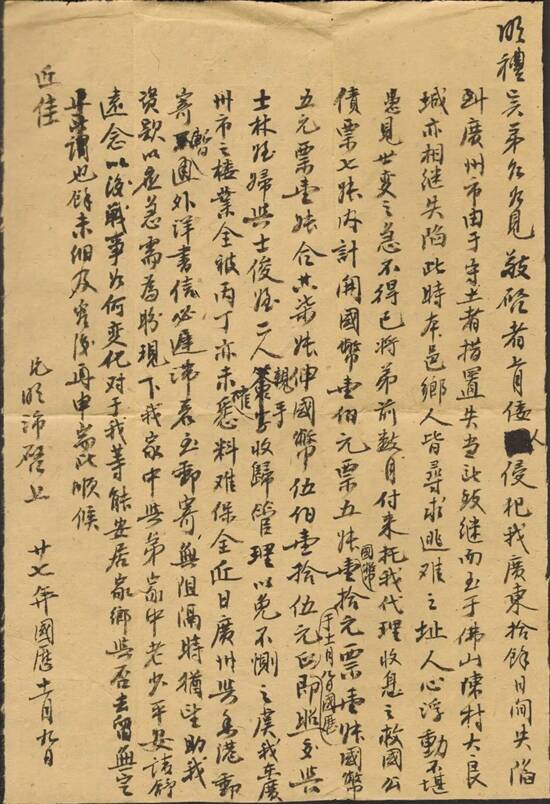 明禮吾弟如見 敬啓者倭人侵犯我廣東拾餘日間失陷
到廣州市由于守土者措置失當所致继而至于佛山陳村大良
城亦相继失陷此時本邑鄉人皆尋求逃难之址人心浮動不堪
愚見世変之急不得已將弟前数月付来托我代理收息之救國公
債票七帋内計開國幣壹佰元票五帋國幣壹拾元票壹帋國幣
五元票壹帋合共柒帋伸國幣伍佰壹拾伍元正于十一月八号國歷即照交與
士林侄婦與士俊侄二人親手收歸管理以免不测之虞我在廣
州市之楼業全被丙丁亦未悉確料难保全近日廣州與香港郵
寄暫外洋書信必遲滞若至郵寄無阻隔時猶望助我
資款以应急需為盼現下我家中與弟家中老少平安請舒
遠念以後戰事如何変化对于我等能安居家鄉與否去留無定
此謂也餘未细及容後再申耑此順候
近佳
兄明沛啓上 廿七年國歷十一月九日